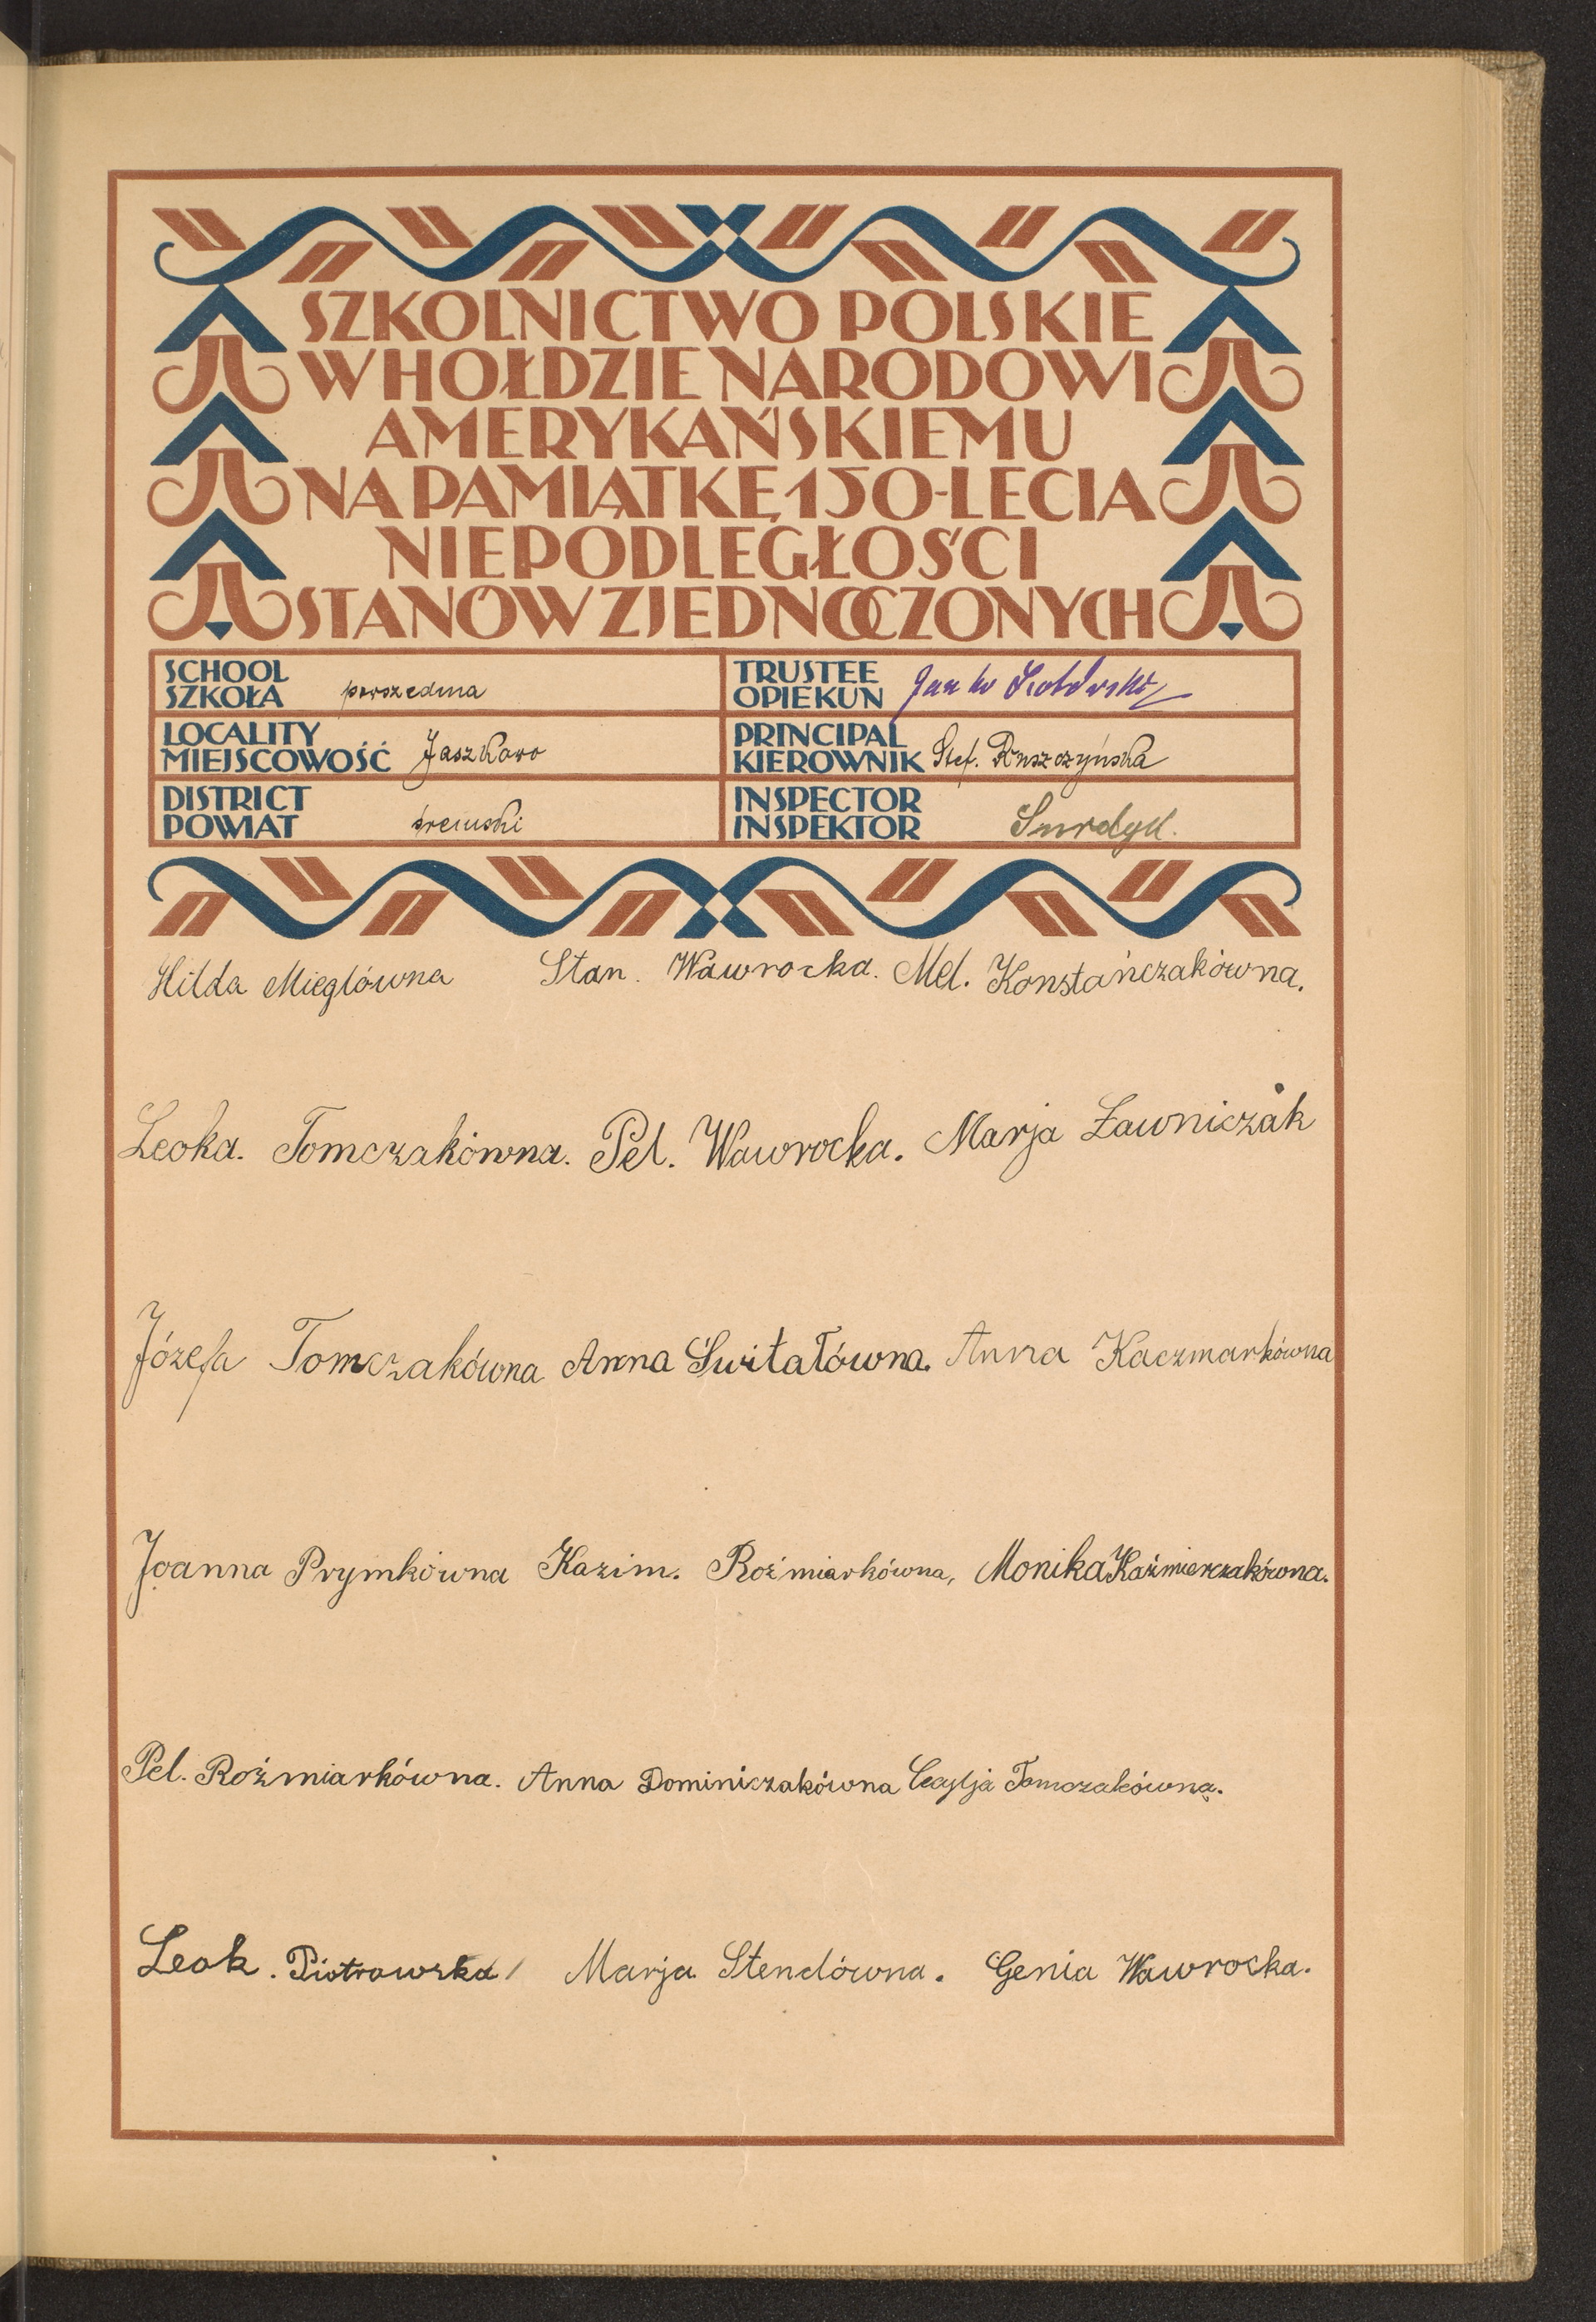 SZKOLNICTWO POLSKIE
W HOŁDZIE NARODOWI
AMERYKAŃSKIEMU
NA PAMIĄTKĘ 150-LECIA
NIEPODLEGŁOŚCI
STANÓW ZJEDNOCZONYCH
SCHOOL
SZKOŁA powszechna
TRUSTEE
OPIEKUN
LOCALITY
MIEJSCOWOŚĆ Jaszkowo
PRINCIPAL
KIEROWNIK Stef. Ruszczyńska
DISTRICT
POWIAT śremski
INSPECTOR
INSPEKTOR Surdyk.
Hilda Mieglówna Stan. Wawrocka. Mel. Konstańczakówna.
Leoka. Tomczakówna. Pel. Wawrocka. Marja Ławniczak
Józefa Tomczakówna Anna Świtałówna. Anna Kaczmarkówna
Joanna Prymkówna Kazim. Roźmiarkówna, Monika Kaźmierczakówna.
Pel. Roźmiarkówna. Anna Dominiczakówna Cecylja Tomczakówna.
Leok. Piotrowska Marja Stendówna. Genia Wawrocka.